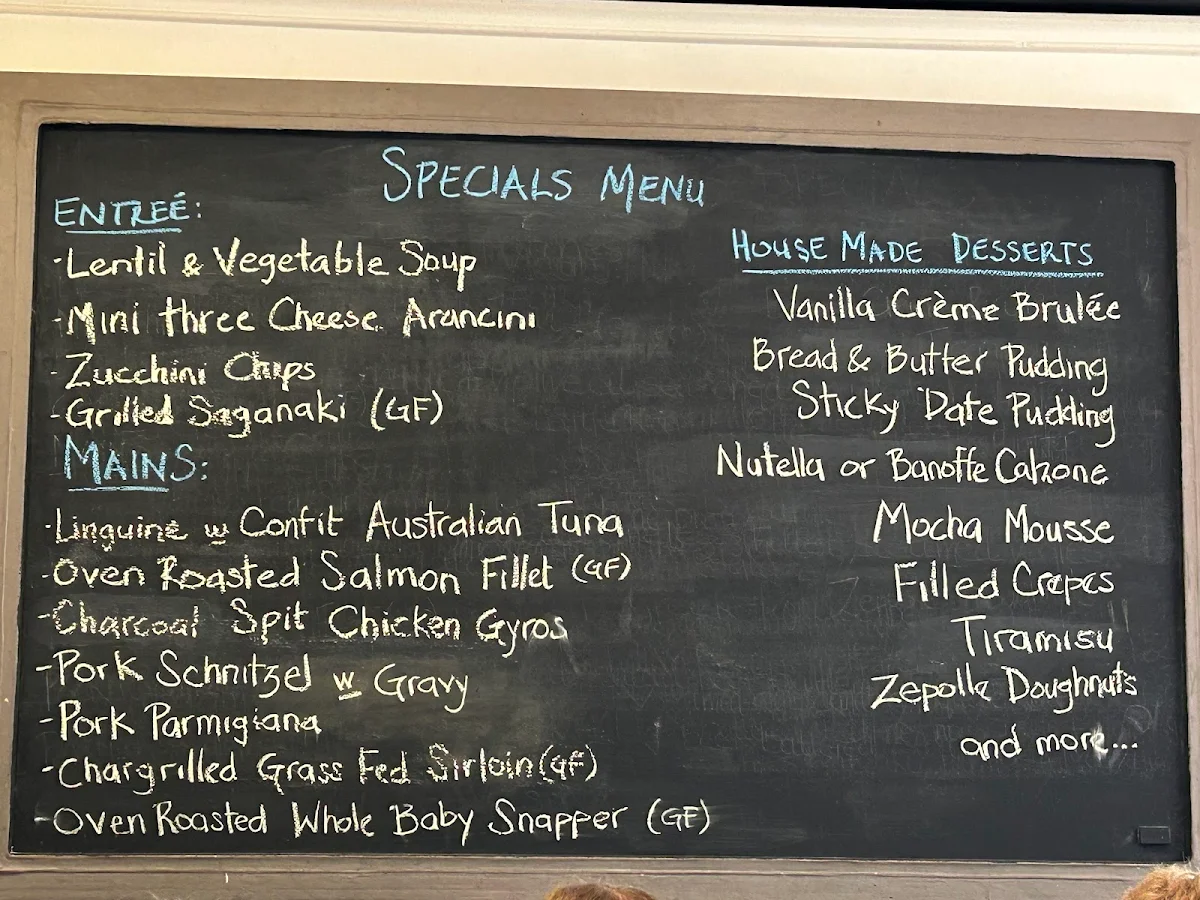 SPECIALS MENU
ENTREÉ:
-Lentil & Vegetable Soup
-Mini three Cheese Arancini
-Zucchini Chips
-Grilled Saganaki (GF)
MAINS:
-Linguine w Confit Australian Tuna
-Oven Roasted Salmon Fillet (GF)
-Charcoal Spit Chicken Gyros
-Pork Schnitzel w Gravy
-Pork Parmigiana
-Chargrilled Grass Fed Sirloin (GF)
-Oven Roasted Whole Baby Snapper (GF)
HOUSE MADE DESSERTS
Vanilla Crème Brulée
Bread & Butter Pudding
Sticky Date Pudding
Nutella or Banoffe Calzone
Mocha Mousse
Filled Crepes
Tiramisu
Zepolle Doughnuts
and more...